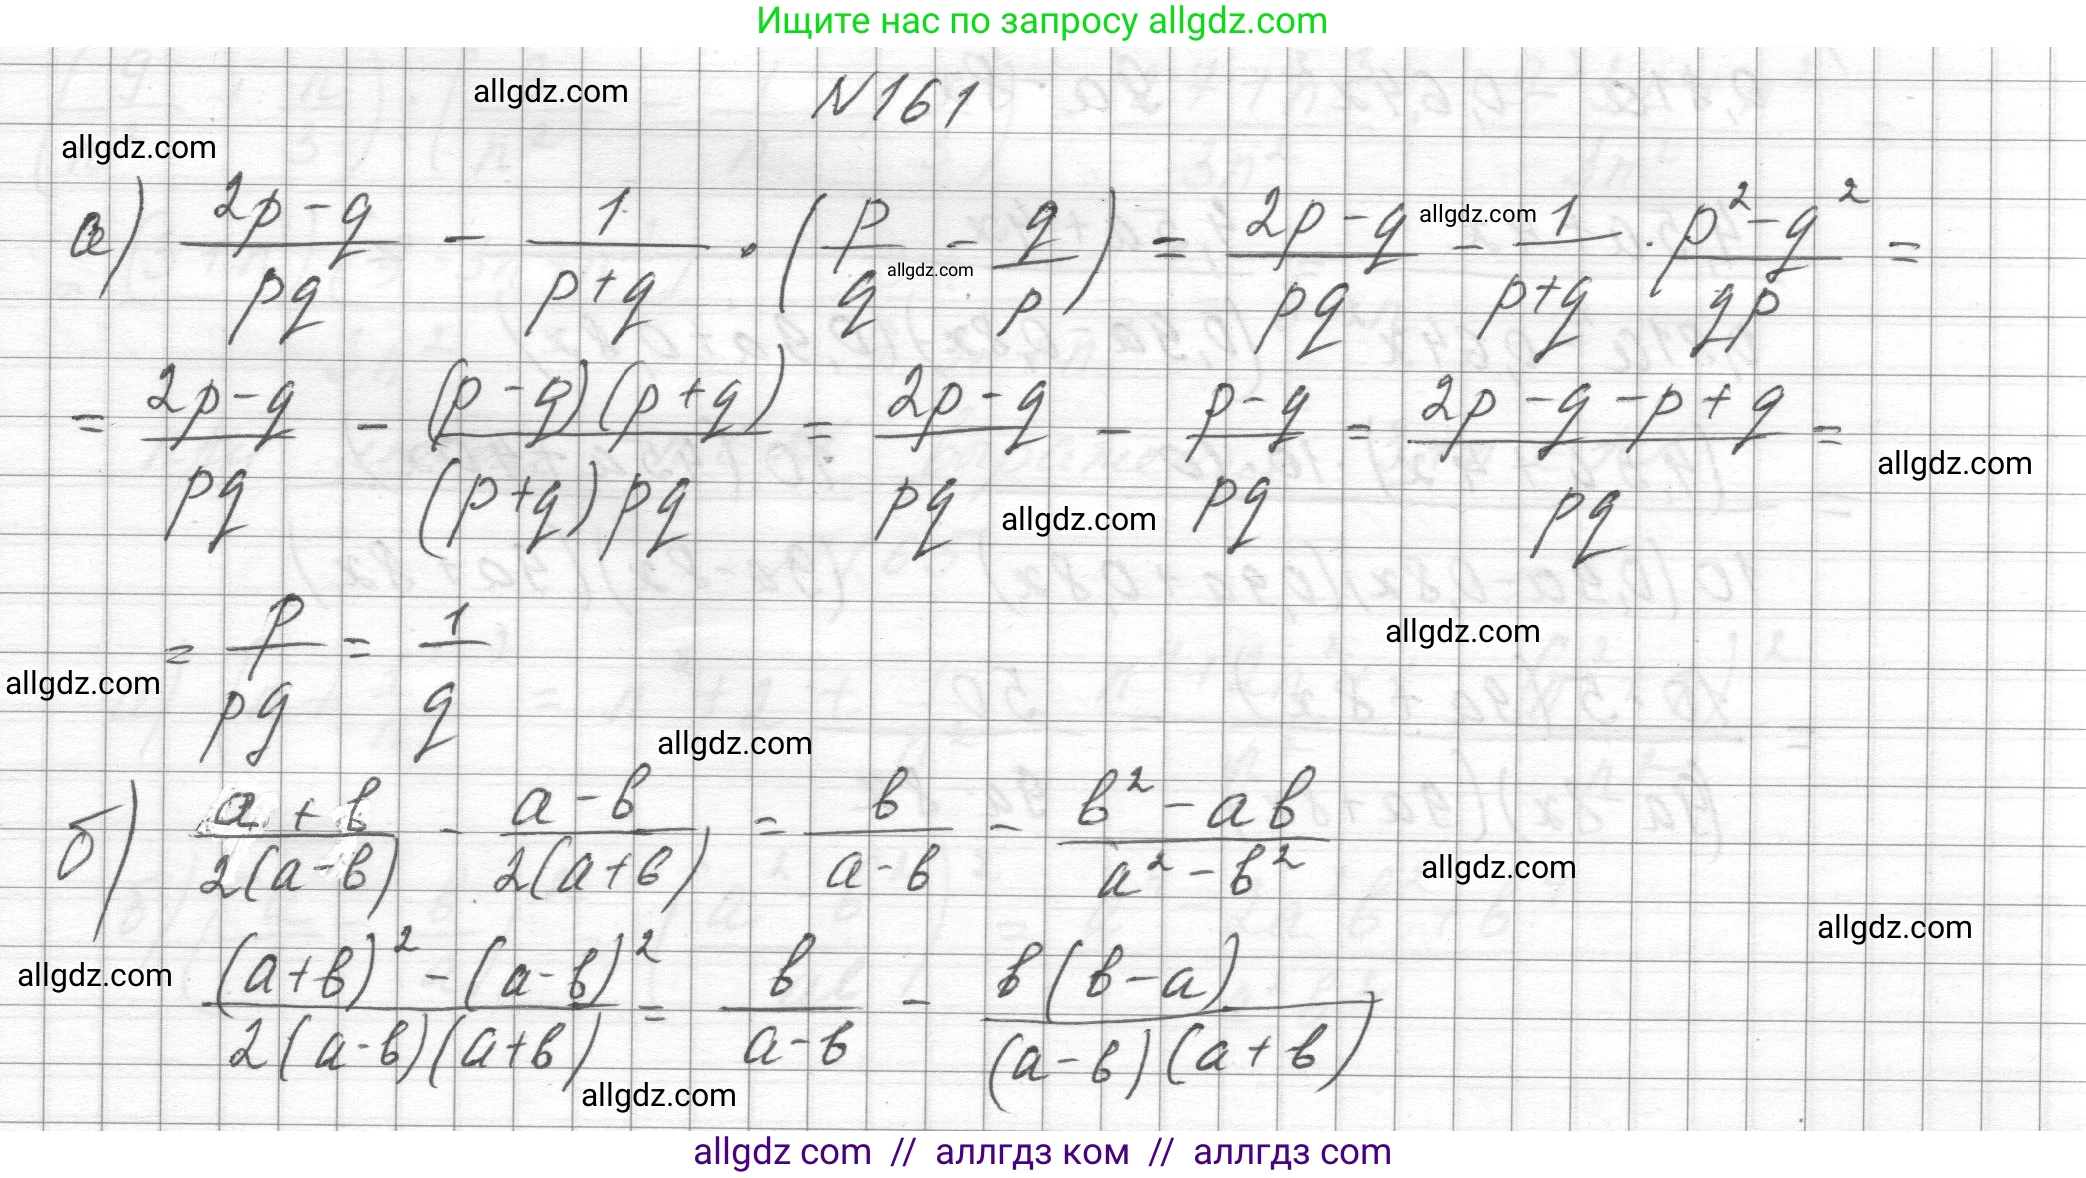 Ищите нас по запросу allgdz.com
allgdz.com
N161
allgdz.com
а) (2p-q)/(pq) - 1/(p+q) · (p/q - q/p) = (2p-q)/(pq) - 1/(p+q) · (p²-q²)/(qp) =
allgdz.com
allgdz.com
= (2p-q)/(pq) - ((p-q)(p+q))/((p+q)pq) = (2p-q)/(pq) - (p-q)/(pq) = (2p-q-p+q)/(pq) =
allgdz.com
allgdz.com
allgdz.com
= p/(pq) = 1/q
allgdz.com
allgdz.com
б) (a+b)/(2(a-b)) - (a-b)/(2(a+b)) = b/(a-b) - (b²-ab)/(a²-b²)
allgdz.com
allgdz.com
allgdz.com
((a+b)²-(a-b)²)/(2(a-b)(a+b)) = b/(a-b) - (b(b-a))/((a-b)(a+b))
allgdz.com
allgdz com // аллгдз ком // аллгдз com